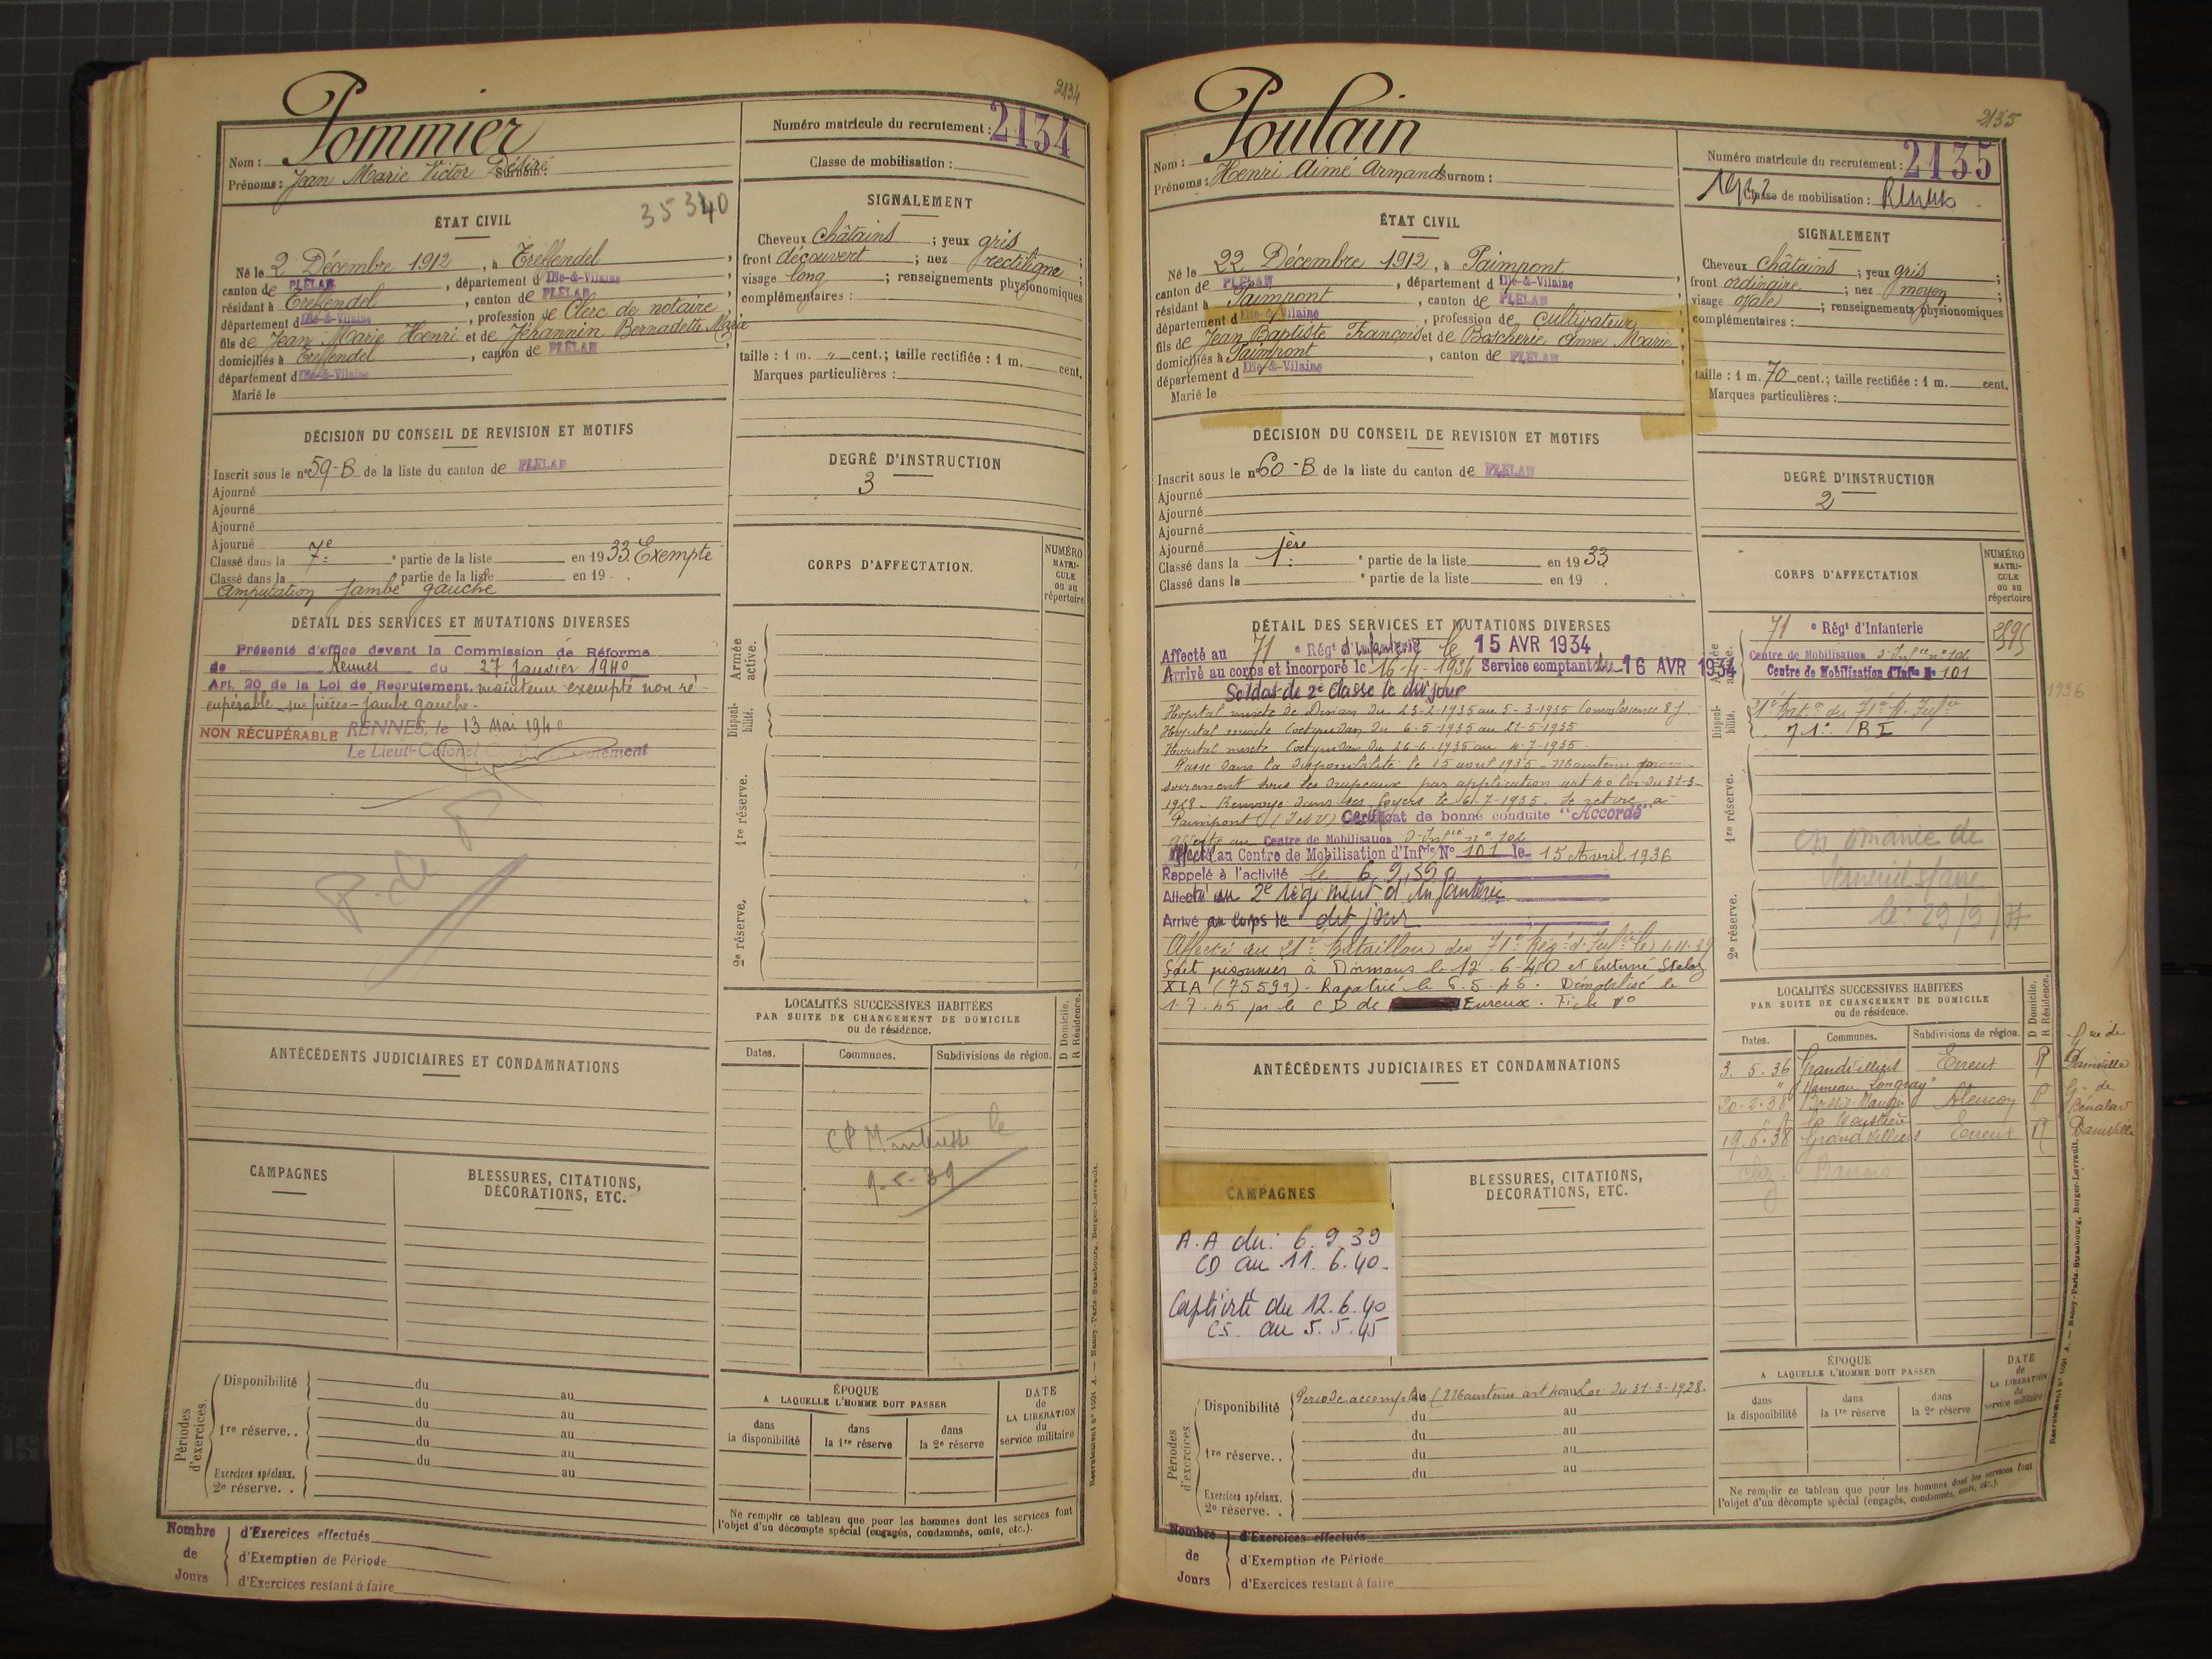 2134
Pommier
Nom :
Prénoms : Jean Marie Victor Désiré Surnom :
Numéro matricule du recrutement : 2134
Classe de mobilisation :
35340
ÉTAT CIVIL
Né le 2 Décembre 1912, à Treffendel,
canton de PLÉLAN, département d Ille-&-Vilaine
résidant à Treffendel, canton de PLÉLAN,
département d Ille-&-Vilaine, profession de Clerc de notaire
fils de Jean Marie Henri et de Jéhannin Bernadette Marie
domiciliés à Treffendel, canton de PLÉLAN
département d Ille-&-Vilaine
Marié le
SIGNALEMENT
Cheveux châtains ; yeux gris ;
front découvert ; nez rectiligne ;
visage long ; renseignements physionomiques
complémentaires :
taille : 1 m. " cent.; taille rectifiée : 1 m. cent.
Marques particulières :
DÉCISION DU CONSEIL DE REVISION ET MOTIFS
Inscrit sous le n° 59-B de la liste du canton de PLÉLAN
Ajourné
Ajourné
Ajourné
Ajourné
Classé dans la 7e partie de la liste en 1933 Exempté
Classé dans la partie de la liste en 19 .
Amputation jambe gauche
DEGRÉ D'INSTRUCTION
3
CORPS D'AFFECTATION.
NUMÉRO MATRICULE ou au répertoire
Armée active.
Disponibilité.
1re réserve.
2e réserve.
DÉTAIL DES SERVICES ET MUTATIONS DIVERSES
Présenté d'office devant la Commission de Réforme
de Rennes du 27 Janvier 1940
Art. 20 de la Loi de Recrutement. maintenu exempté non ré-
cupérable sur pièces - jambe gauche.
NON RÉCUPÉRABLE RENNES, le 13 Mai 1940
Le Lieut-Colonel
P. de P
ANTÉCÉDENTS JUDICIAIRES ET CONDAMNATIONS
LOCALITÉS SUCCESSIVES HABITÉES
PAR SUITE DE CHANGEMENT DE DOMICILE
ou de résidence.
D Domicile.
R Résidence.
Dates.
Communes.
Subdivisions de région.
9-5-39
CAMPAGNES
BLESSURES, CITATIONS,
DÉCORATIONS, ETC.
Périodes d'exercices.
Disponibilité du au
du au
1re réserve. . du au
du au
du au
Exercices spéciaux.
2e réserve. .
ÉPOQUE
A LAQUELLE L'HOMME DOIT PASSER
dans la disponibilité
dans la 1re réserve
dans la 2e réserve
DATE de LA LIBÉRATION du service militaire
Ne remplir ce tableau que pour les hommes dont les services font
l'objet d'un décompte spécial (engagés, condamnés, omis, etc.).
Nombre de Jours
d'Exercices effectués
d'Exemption de Période
d'Exercices restant à faire
2135
Poulain
Nom :
Prénoms : Henri Aimé Armand Surnom :
Numéro matricule du recrutement : 2135
Classe de mobilisation :
ÉTAT CIVIL
Né le 22 Décembre 1912, à Paimpont
canton de PLÉLAN, département d Ille-&-Vilaine
résidant à Paimpont, canton de PLÉLAN
département d Ille-&-Vilaine, profession de cultivateur
fils de Jean Baptiste François et de Boscherie Anne Marie
domiciliés à Paimpont, canton de PLÉLAN
département d Ille-&-Vilaine
Marié le
SIGNALEMENT
Cheveux châtains ; yeux gris ;
front ordinaire ; nez moyen ;
visage ovale ; renseignements physionomiques
complémentaires :
taille : 1 m. 70 cent.; taille rectifiée : 1 m. cent.
Marques particulières :
DÉCISION DU CONSEIL DE REVISION ET MOTIFS
Inscrit sous le n° 60-B de la liste du canton de PLÉLAN
Ajourné
Ajourné
Ajourné
Ajourné
Classé dans la 1ère partie de la liste en 1933
Classé dans la partie de la liste en 19 .
DEGRÉ D'INSTRUCTION
2
CORPS D'AFFECTATION
NUMÉRO MATRICULE ou au répertoire
71e Régt d'Infanterie
Centre de Mobilisation d'Infie n° 102
Centre de Mobilisation d'Infie N° 101
1936
21e Bat. du 71e R. Infie
71e BI
le 29/9/
DÉTAIL DES SERVICES ET MUTATIONS DIVERSES
Affecté au 71e Régt d'Infanterie le 15 AVR 1934
Arrivé au corps et incorporé le 16-4-1934 Service comptant du 16 AVR 1934
Soldat de 2e classe le dit jour
Hopital mixte de Dinan du 23-2-1935 au 5-3-1935 Convalescence 8 j.
Hopital mixte Coetquidan du 6-5-1935 au 21-5-1935
Hopital mixte Coetquidan du 26-6-1935 au 4-7-1935.
Passé dans la disponibilité le 15 avril 1935 - Maintenu provi-
soirement sous les drapeaux par application art 40 loi du 31-3-
1928. Renvoyé dans ses foyers le 6-7-1935. Se retire à
Paimpont (I et V) Certificat de bonne conduite "Accordé"
affecté au Centre de Mobilisation d'Infie n° 102
Affecté au Centre de Mobilisation d'Infrie N° 101 le 15 Avril 1936
Rappelé à l'activité le 6.9.39
Affecté au 2e régiment d'infanterie
Arrivé au corps le dit jour
Affecté au 21e Bataillon du 71e Régt d'Infie le 1.11.39
Fait prisonnier à Dormans le 12-6-40 et interné Stalag
XIA (75599). Rapatrié le 6.5.45. Démobilisé le
1.7.45 par le CD de Evreux. Fiche n°
ANTÉCÉDENTS JUDICIAIRES ET CONDAMNATIONS
LOCALITÉS SUCCESSIVES HABITÉES
PAR SUITE DE CHANGEMENT DE DOMICILE
ou de résidence.
D Domicile.
R Résidence.
Dates. Communes. Subdivisions de région.
3.5.36 Grandvilliers Evreux R Damville
" Hameau Longray"
20.2.38 Alençon R
19.6.38 Grandvilliers Evreux R Damville
CAMPAGNES
A.A du 6.9.39
CD au 11.6.40.
Captivité du 12.6.40
CS. au 5.5.45
BLESSURES, CITATIONS,
DÉCORATIONS, ETC.
Périodes d'exercices.
Disponibilité Période accomplie (Maintenu art 40 au Loi du 31-3-1928.
du au
du au
1re réserve. . du au
du au
Exercices spéciaux.
2e réserve. .
ÉPOQUE
A LAQUELLE L'HOMME DOIT PASSER
dans la disponibilité
dans la 1re réserve
dans la 2e réserve
DATE de LA LIBÉRATION du service militaire
Ne remplir ce tableau que pour les hommes dont les services font
l'objet d'un décompte spécial (engagés, condamnés, omis, etc.).
Nombre de Jours
d'Exercices effectués
d'Exemption de Période
d'Exercices restant à faire